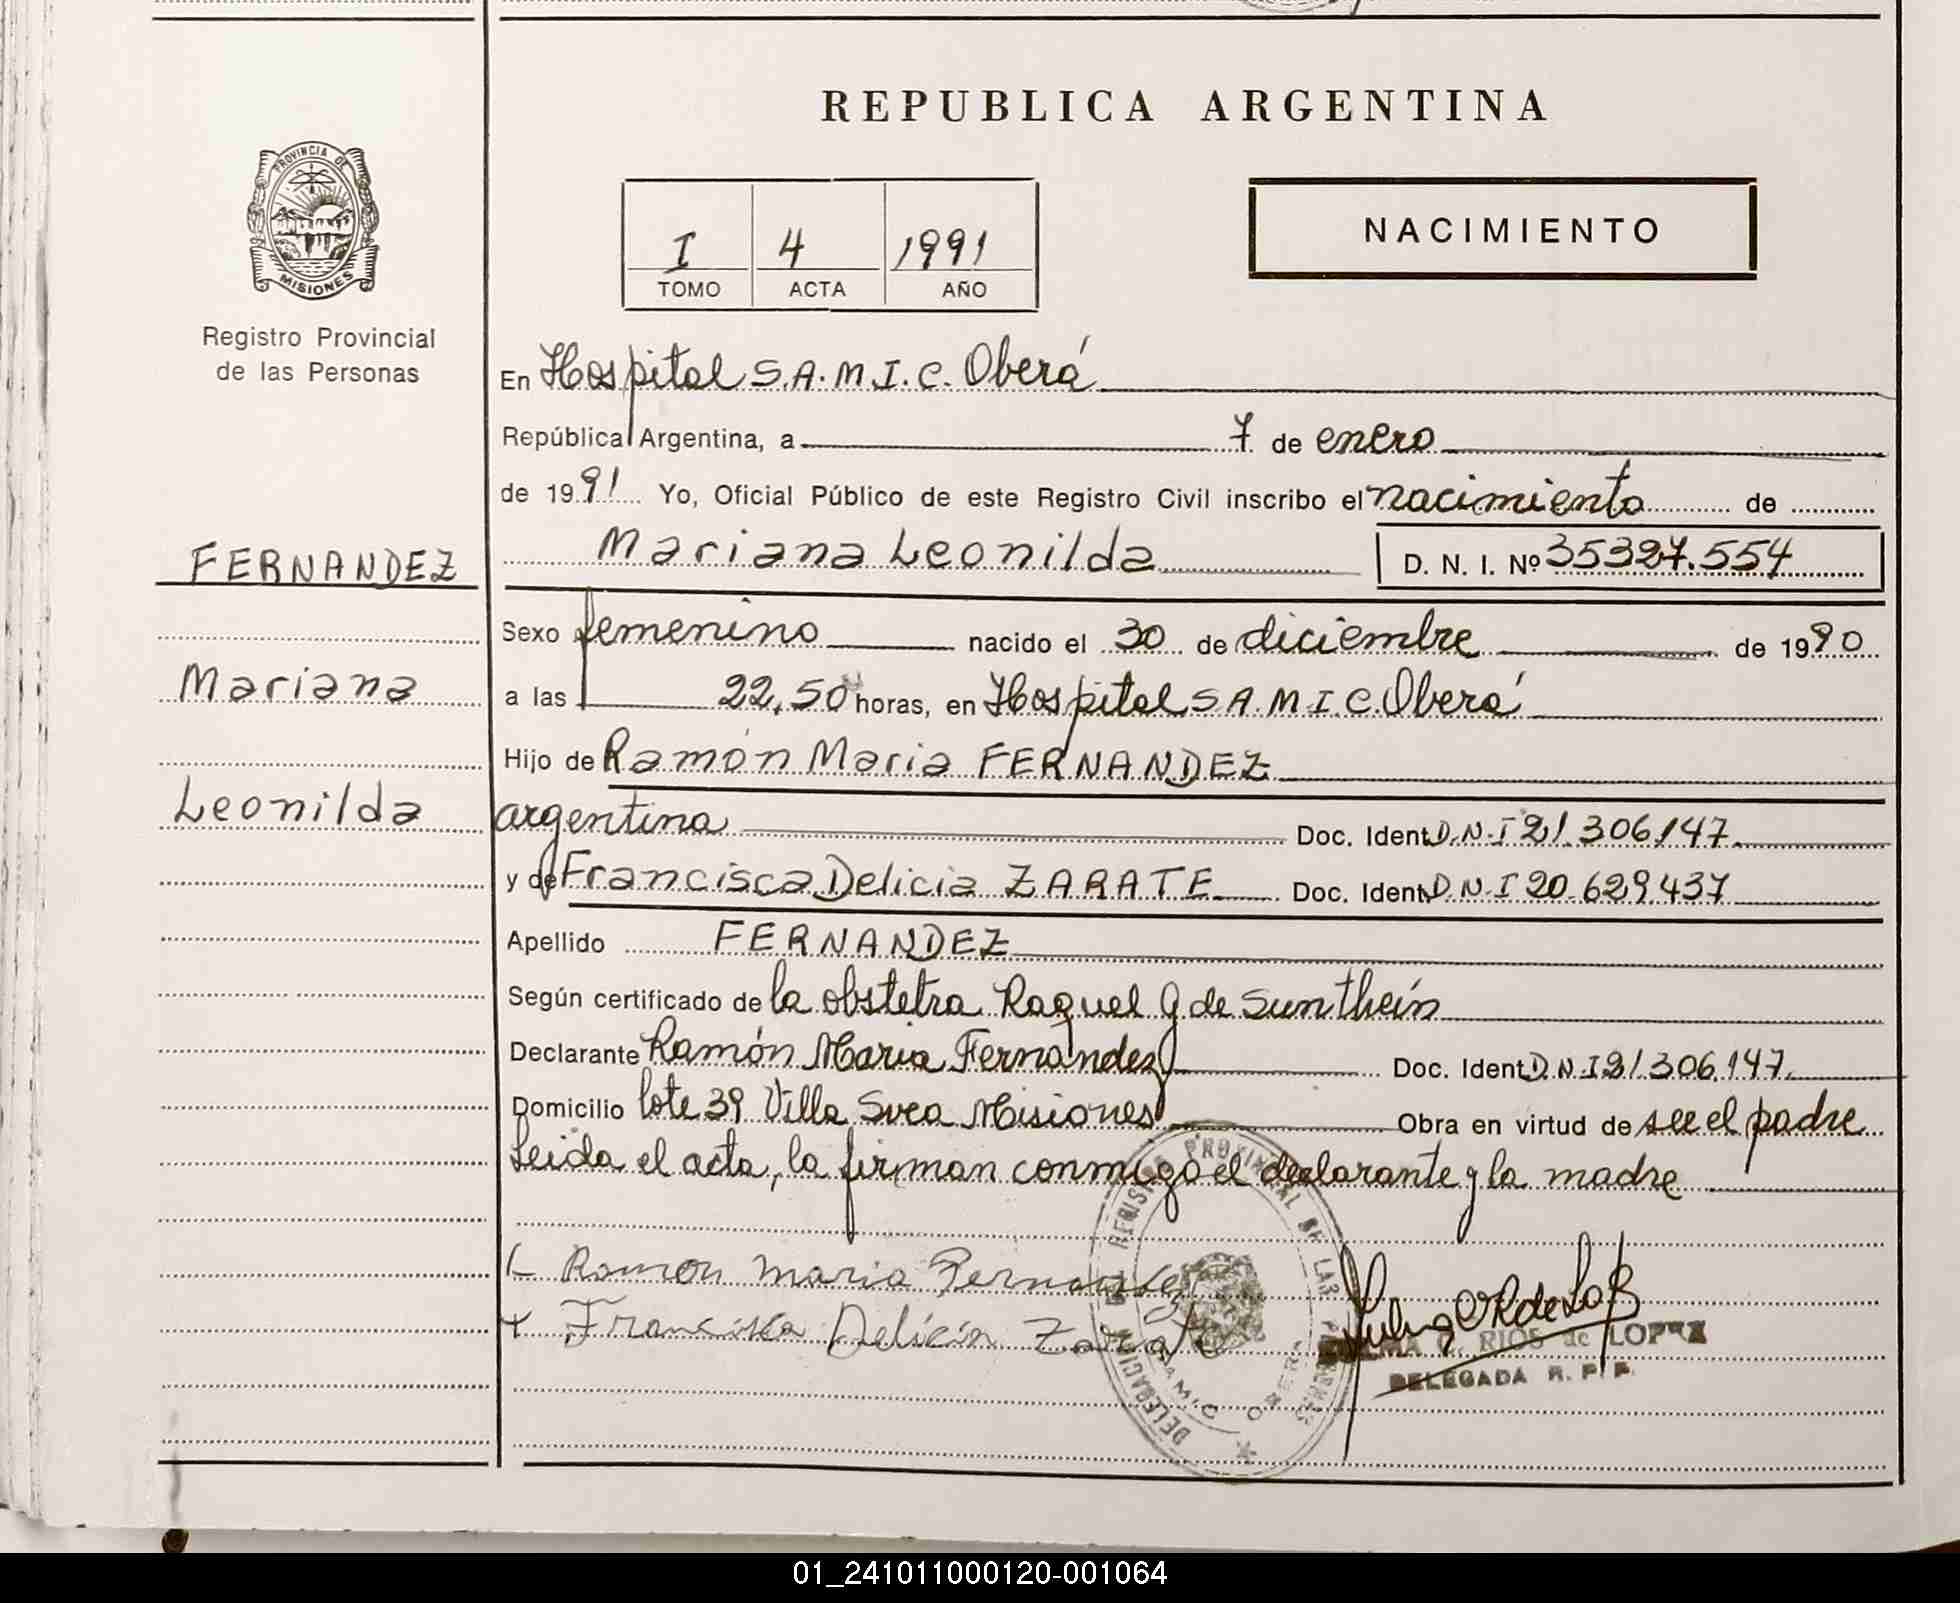 REPUBLICA ARGENTINA
PROVINCIA DE
MISIONES
Registro Provincial
de las Personas
NACIMIENTO
I 4 1991
TOMO ACTA AÑO
En Hospital S.A.M.I.C. Oberá
República Argentina, a 7 de enero
de 1991 Yo, Oficial Público de este Registro Civil inscribo el nacimiento de
FERNANDEZ
Mariana
Leonilda
Mariana Leonilda D. N. I. Nº 35327.554
Sexo femenino nacido el 30 de diciembre de 1990
a las 22,50 horas, en Hospital S A.M I.C. Oberá
Hijo de Ramón Maria FERNANDEZ
argentina Doc. Ident D.N.I 21.306.147.
y de Francisca Delicia ZARATE Doc. Ident D.N.I 20.629.437
Apellido FERNANDEZ
Según certificado de la obstetra Raquel G de
Declarante Ramón Maria Fernandez Doc. Ident D.N.I 21306.147.
Domicilio lote 39 Villa Svea Misiones Obra en virtud de ser el padre
Leida el acta, la firman conmigo el declarante y la madre
Ramon maria Fernandez
Francisca Delicia Zarate
DELEGACION REGISTRO PROVINCIAL DE LAS PERSONAS
SAMIC OBERA
RIOS de LOPEZ
DELEGADA R. P. P.
01_241011000120-001064